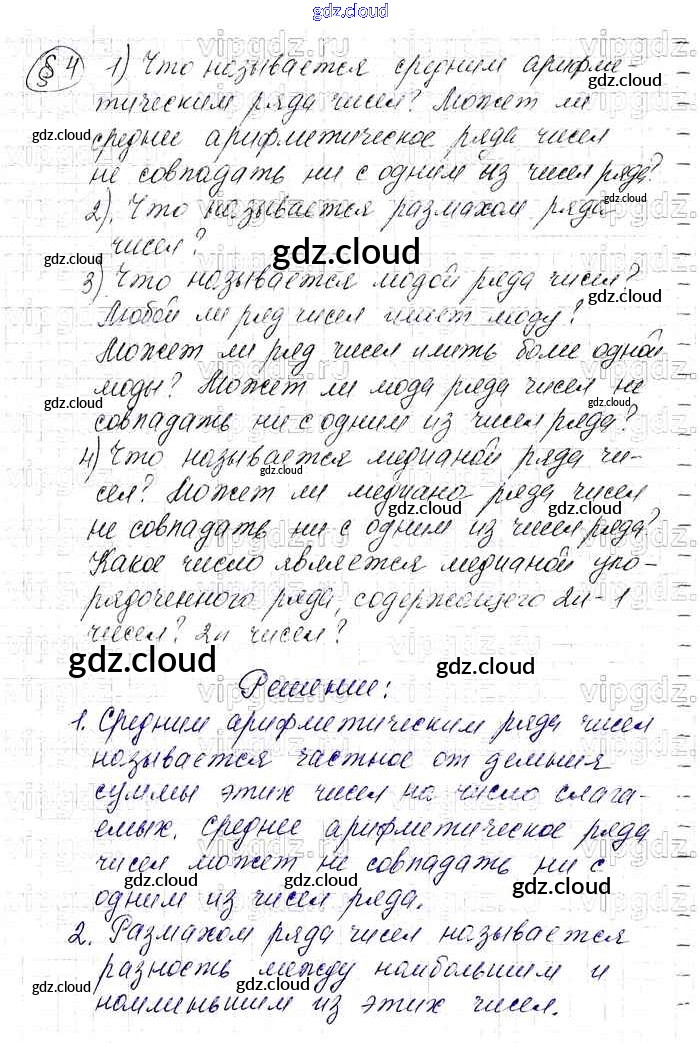 gdz.cloud
§ 4 1) Что называется средним арифме-
тическим ряда чисел? Может ли
среднее арифметическое ряда чисел
не совпадать ни с одним из чисел ряда?
2). Что называется размахом ряда
чисел?
3) Что называется модой ряда чисел?
Любой ли ряд чисел имеет моду?
Может ли ряд чисел иметь более одной
моды? Может ли мода ряда чисел не
совпадать ни с одним из чисел ряда?
4) Что называется медианой ряда чи-
сел? Может ли медиана ряда чисел
не совпадать ни с одним из чисел ряда?
Какое число является медианой упо-
рядоченного ряда, содержащего 2n-1
чисел? 2n чисел?
Решение:
1. Средним арифметическим ряда чисел
называется частное от деления
суммы этих чисел на число слага-
емых. Среднее арифметическое ряда
чисел может не совпадать ни с
одним из чисел ряда.
2. Размахом ряда чисел называется
разность между наибольшим и
наименьшим из этих чисел.